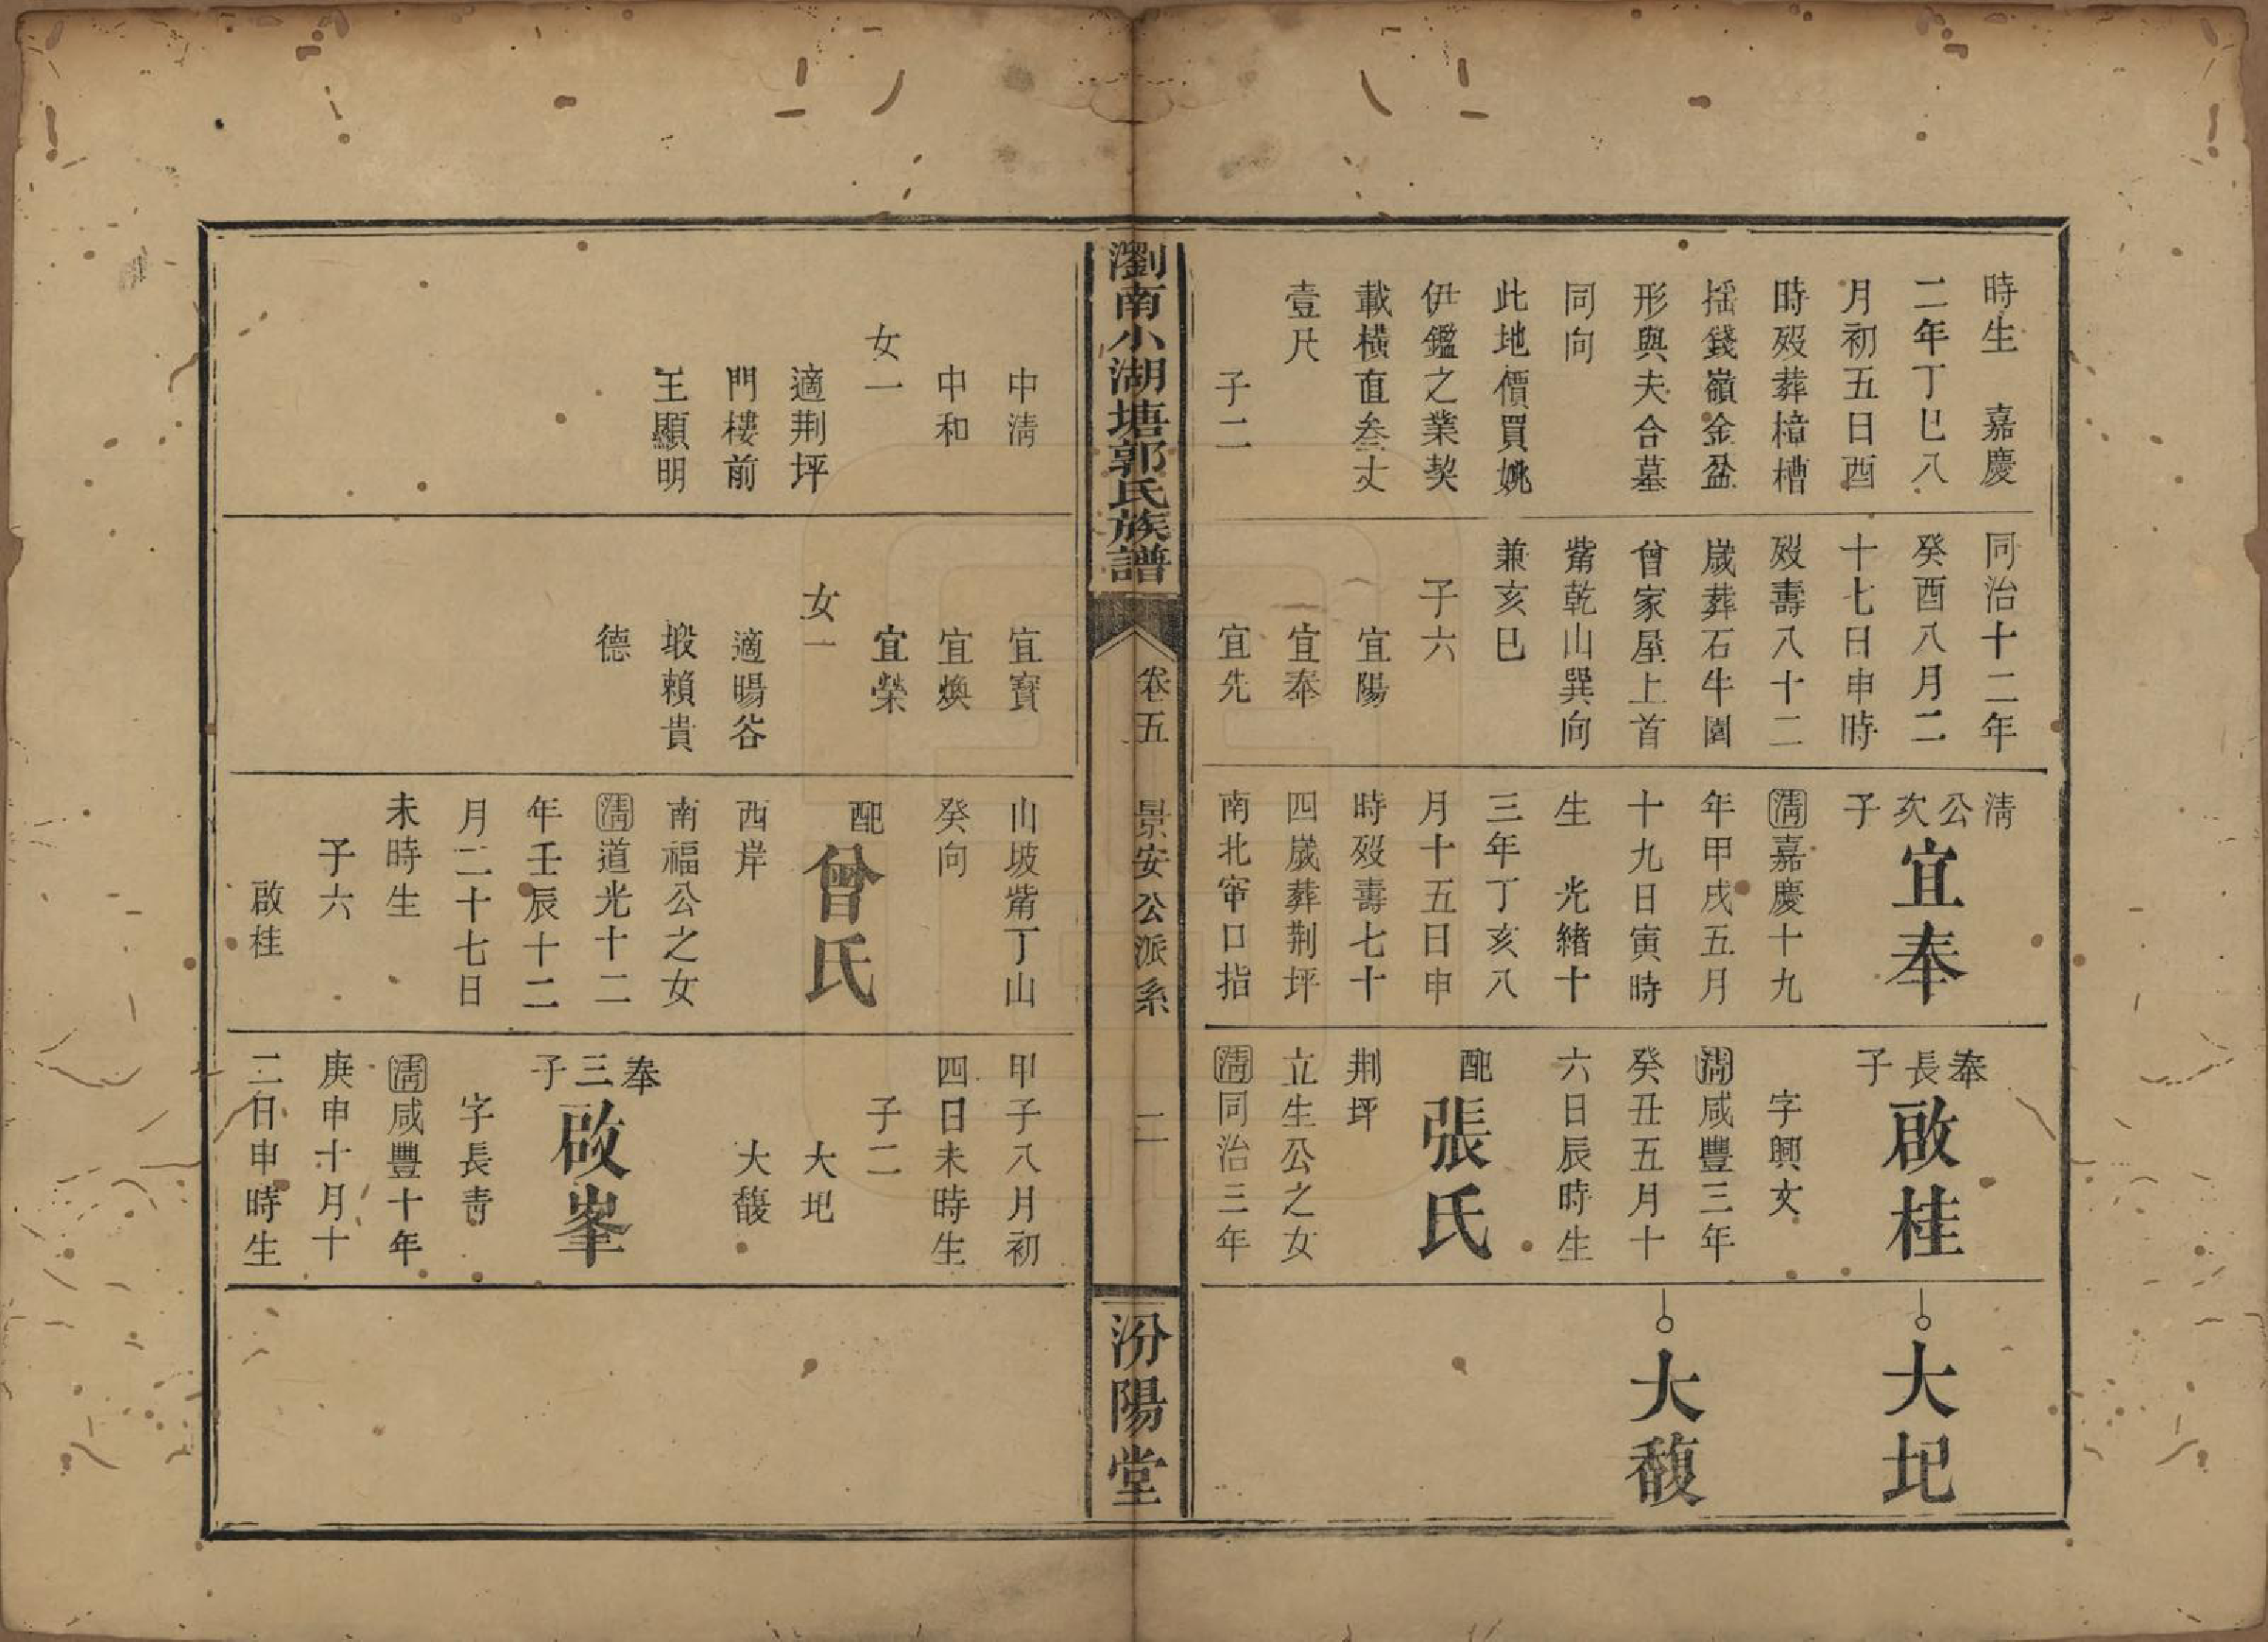 時生　嘉慶
二年丁巳八
月初五日酉
時歿葬樟槽
搖錢嶺金盆
形與夫合墓
同向
此地價買姚
伊鑑之業契
載橫直叁丈
壹尺
子二
同治十二年
癸酉八月二
十七日申時
歿壽八十二
歲葬石牛園
曾家屋上首
觜乾山巽向
兼亥巳
子六
宜陽
宜奉
宜先
淸公次子
宜奉
淸嘉慶十九
年甲戌五月
十九日寅時
生　光緒十
三年丁亥八
月十五日申
時歿壽七十
四歲葬荆坪
南北窂口指
奉長子
啟桂
字興文
淸咸豐三年
癸丑五月十
六日辰時生
配
張氏
荆坪
立生公之女
淸同治三年
大圯
大馥
瀏南小湖塘郭氏族譜
卷五
景安公派系
二
汾陽堂
中淸
中和
女一
適荆坪
門樓前
王顯明
宜寳
宜煥
宜榮
女一
適暘谷
塅賴貴
德
山坡觜丁山
癸向
配
曾氏
西岸
南福公之女
淸道光十二
年壬辰十二
月二十七日
未時生
子六
啟桂
甲子八月初
四日未時生
子二
大圯
大馥
奉三子
啟峯
字長青
淸咸豐十年
庚申十月十
二日申時生